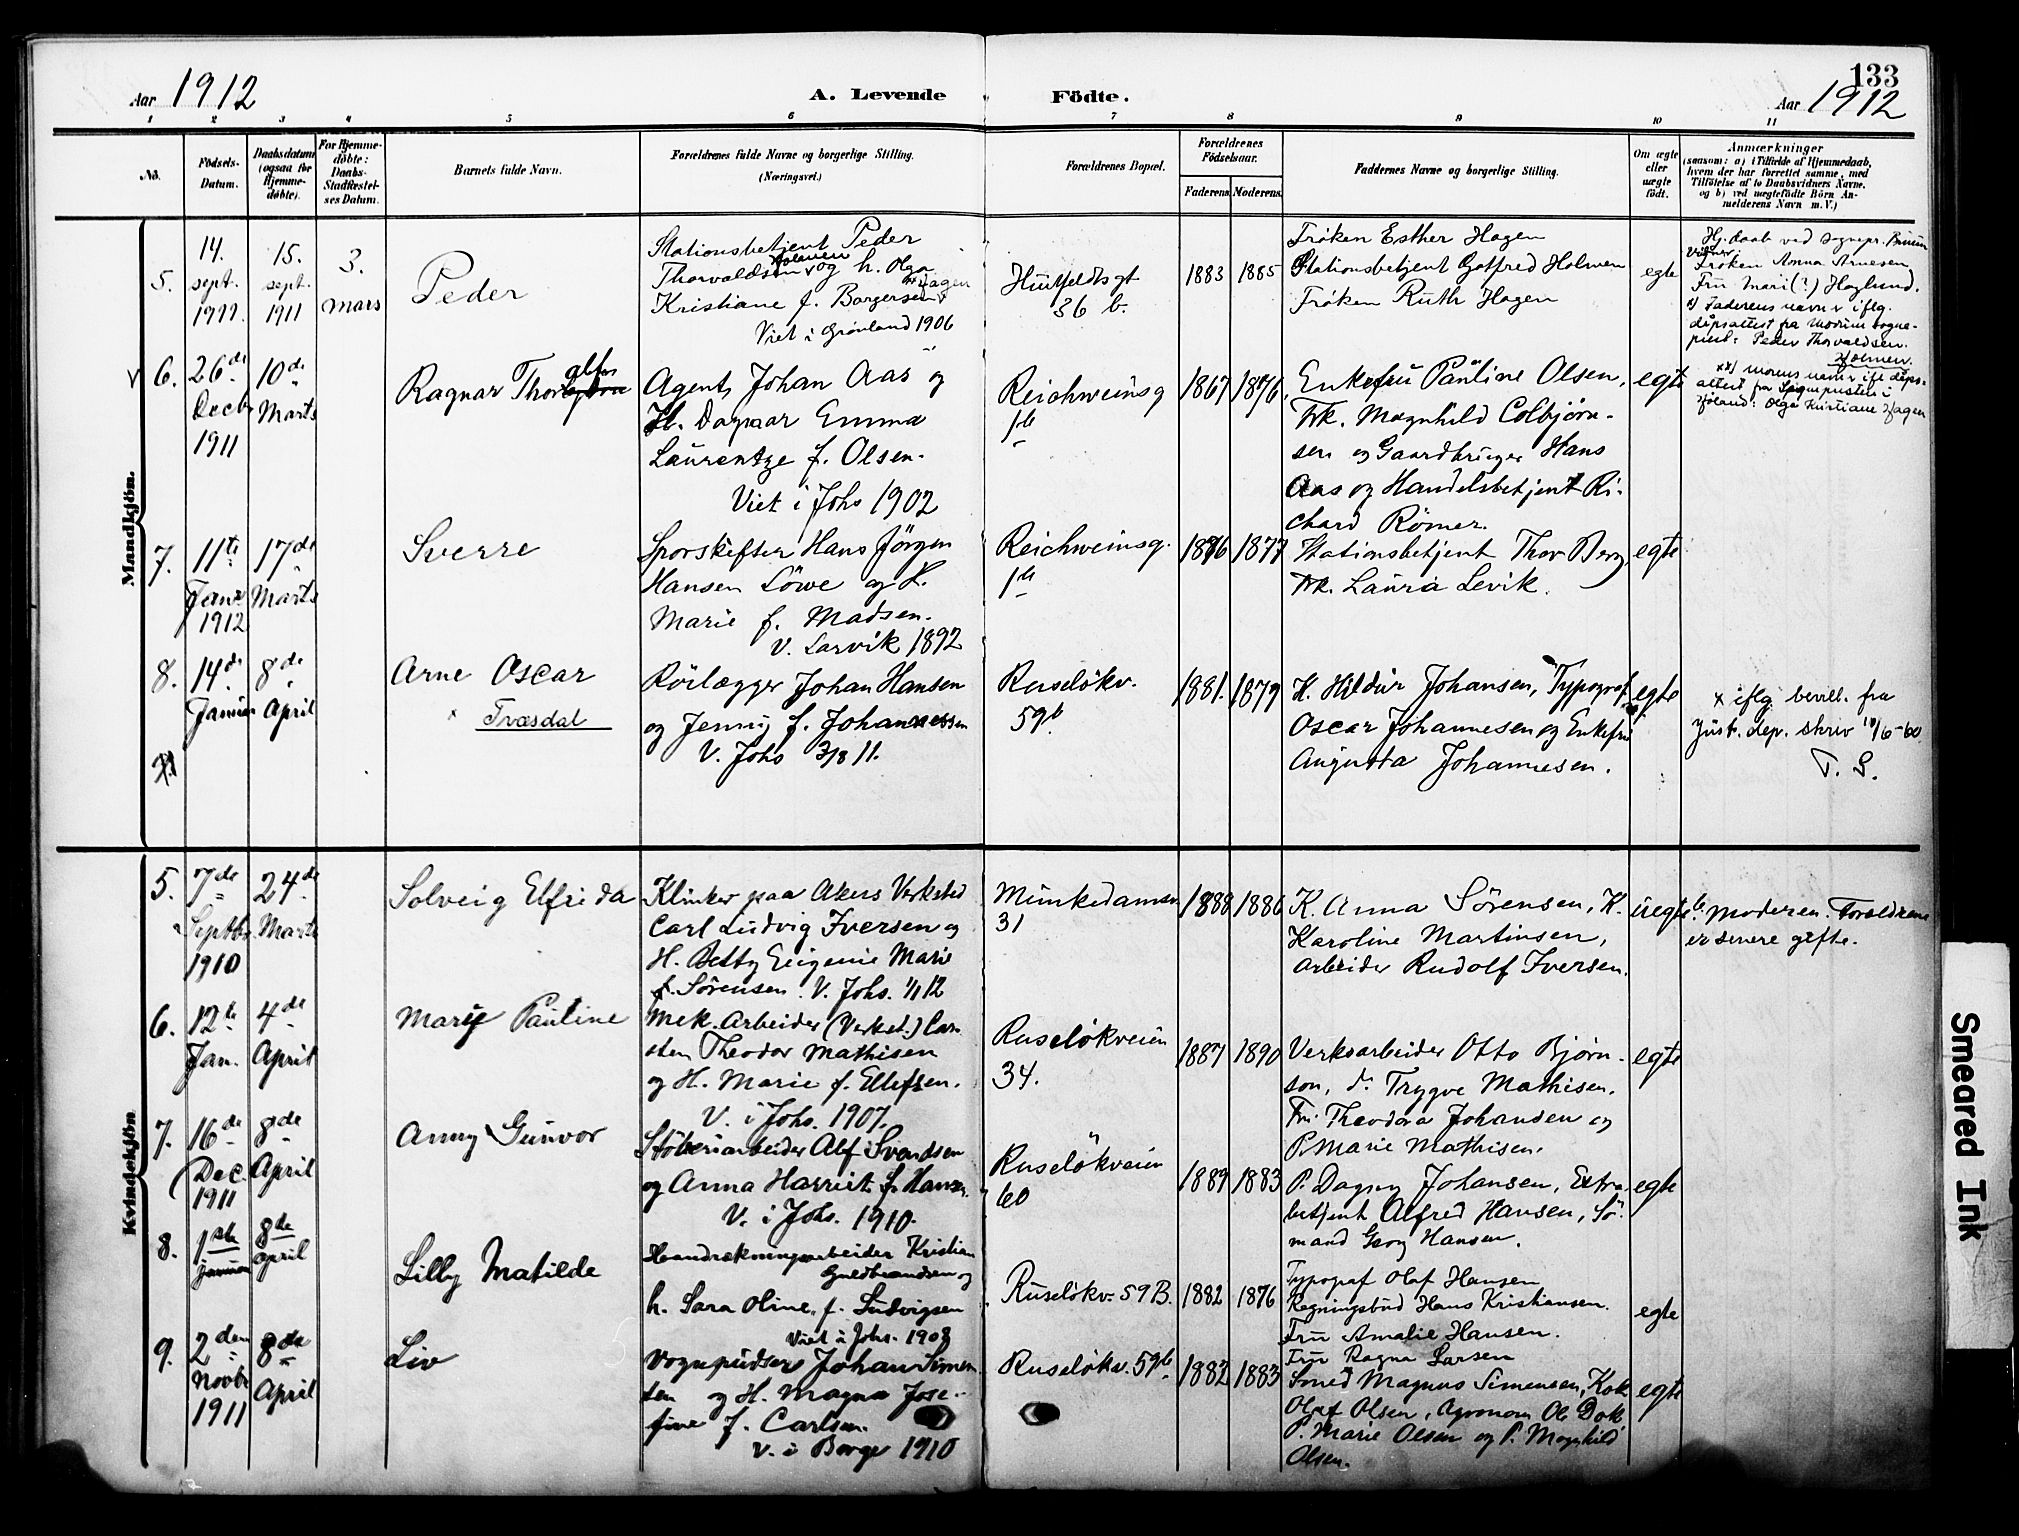 133
Aar 1912
A. Levende Fødte.
Aar 1912
1 2 3 4 5 6 7 8 9 10 11
No.
Fødsels-Datum.
Daabsdatum (ogsaa for Hjemme-døbte).
For Hjemme-døbte: Daabs-Stadfæstel-ses Datum.
Barnets fulde Navn.
Forældrenes fulde Navne og borgerlige Stilling.
(Næringsvei.)
Forældrenes Bopæl.
Forældrenes Fødselsaar.
Faderens. Moderens.
Faddernes Navne og borgerlige Stilling.
Om ægte eller uægte født.
Anmærkninger
(saasom: a) i Tilfælde af Hjemmedaab,
hvem der har forrettet samme, med
Tilføielse af to Daabsvidners Navne,
og b) ved uægtefødte Børn An-
melderens Navn m. V.)
Mandkjøn.
5.
14.
sept.
1911.
15.
sept.
1911
3.
mars
Peder
Stationsbetjent Peder
Thorvaldsen Holmen og h. Olga
Kristiane f. Borgersen Hagen
Viet i Grønland 1906
Huitfeldtsgt
36 b.
1883 1885
Frøken Esther Hagen
Stationsbetjent Gotfred Holmen
Frøken Ruth Hagen
egte
Hj. daab ved sognepr. Bruun
Vidner
Frøken Anna Arnesen
Fru Mari(?) Haglund.
x) Faderens navn iflg.
dåpsattest fra Modum sogne-
prest: Peder Thorvaldsen
Holmen.
xx) morens navn ifl dåps-
attest fra Sognepresten i
Høland: Olga Kristiane Hagen
V 6.
26de
Decbr
1911
10de
Marts
Ragnar Thoralf
Agent Johan Aas og
H. Dagmar Emma
Laurentze f. Olsen.
Viet i Johs 1902
Reichweinsg
1b
1867 1876
Enkefru Pauline Olsen,
Frk. Magnhild Colbjørn-
sen og Gaardbruger Hans
Aas og Handelsbetjent Ri-
chard Rømer.
egte
7.
11te
Janr
1912
17de
Marts
Sverre
Sporskifter Hans Jörgen
Hansen Löwe og H.
Marie f. Madsen.
V. Larvik 1892
Reichweinsg.
1b
1876 1877
Stationsbetjent Thor Berg
Frk. Laura Levik.
egte
8.
14de
Januar
8de
April
Arne Oscar
x Tvæsdal
Rörlægger Johan Hansen
og Jenny f. Johannessen
V. Johs 3/8 11.
Ruselökv.
59b
1881. 1879
H. Hildur Johansen, Typograf
Oscar Johannesen og Enkefru
Augusta Johannesen.
egte
x iflg. bevill. fra
Just. dep. skriv 10/6-60
T. S.
Kvindekjøn
5.
7de
Septbr
1910
24de
Marts
Solveig Elfrida
Klinker paa Akers Verksted
Carl Ludvig Iversen og
H. Betty Eugenie Marie
f. Sörensen. V. Johs. 1/1 12
Munkedamsv
31
1888 1886
K. Anna Sörensen, K.
Karoline Martinsen,
Arbeider Rudolf Iversen.
uegte
b. Moderen. Forældrene
er senere gifte.
6.
12te
Jan.
4de
April
Mary Pauline
Mek. Arbeider (Verkst.) Car-
sten Theodor Mathisen
og H. Marie f. Ellefsen.
V. i Johs. 1907.
Ruselökveien
34.
1887 1890
Verksarbeider Otto Bjørn-
son, do Trygve Mathisen,
Fru Theodora Johansen og
P. Marie Mathisen.
egte
7.
16de
Dec.
1911
8de
April
Anny Gunvor
Støberiarbeider Alf Svendsen
og Anna Harriet f. Hansen.
V. i Johs. 1910.
Ruselökveien
60
1889 1883
P. Dagny Johansen, Extra-
betjent Alfred Hansen, Sö-
mand Georg Hansen.
egte
8.
1ste
januar
8de
april
Lilly Matilde
Haandrækningsarbeider Kristian
Guldbrandsen og
h. Sara Oline f. Ludvigsen
Viet i Johs. 1908
Ruselökv. 59B.
1882 1876
Typograf Olaf Hansen
Regningsbud Hans Kristiansen.
Fru Amalie Hansen.
Fru Ragna Larsen
egte
9.
2den
Novbr
1911
8de
April
Liv
Vognpudser Johan Simen-
sen og H. Magna Jose-
fine f. Carlsen.
V. i Borge 1910
Ruselökv. 59b
1882 1883
Smed Magnus Simensen, Kok
Olaf Olsen, Agronom Ole Dok
P. Marie Olsen og P. Magnhild
Olsen.
egte
Smeared Ink